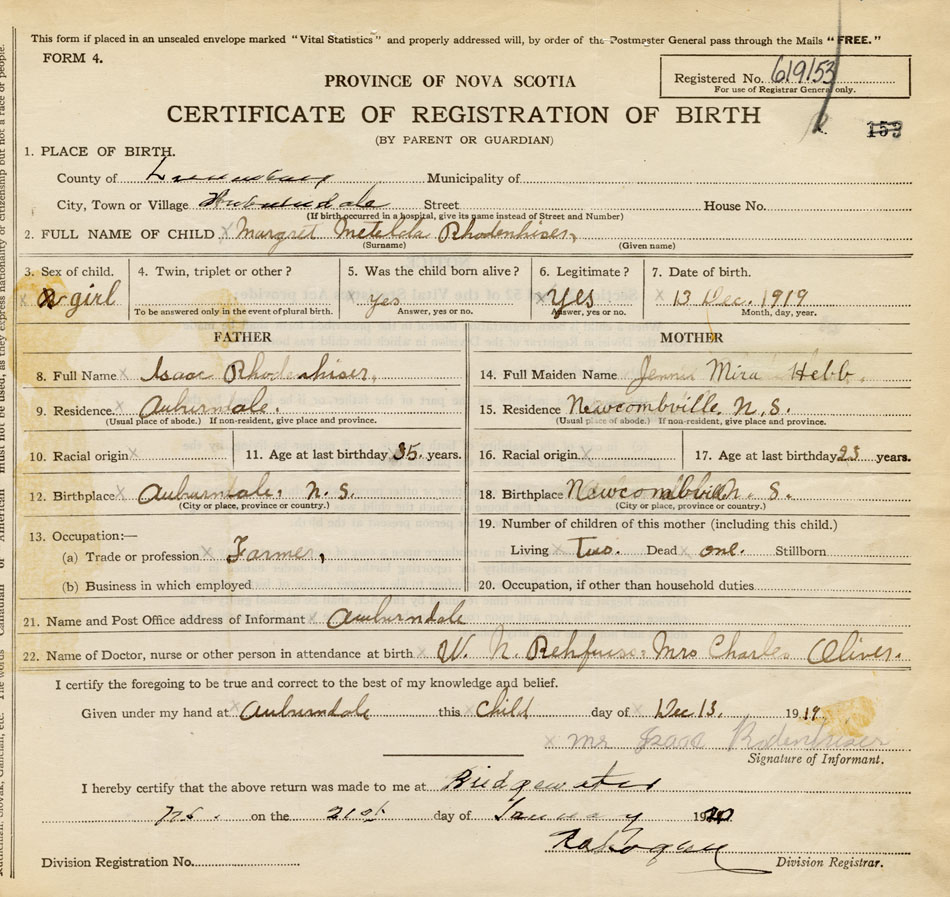 This form if placed in an unsealed envelope marked "Vital Statistics" and properly addressed will, by order of the Postmaster General pass through the Mails "FREE."
FORM 4.
Registered No. 619153
For use of Registrar General only.
PROVINCE OF NOVA SCOTIA
CERTIFICATE OF REGISTRATION OF BIRTH
(BY PARENT OR GUARDIAN)
159
1. PLACE OF BIRTH.
County of Lunenburg Municipality of
City, Town or Village Auburndale Street House No.
(If birth occurred in a hospital, give its name instead of Street and Number)
2. FULL NAME OF CHILD x Margret Metelda Rhodenhiser,
(Surname) (Given name)
3. Sex of child. 4. Twin, triplet or other? 5. Was the child born alive? 6. Legitimate? 7. Date of birth.
x girl x yes x Yes x 13 Dec. 1919
To be answered only in the event of plural birth. Answer, yes or no. Answer, yes or no. Month, day, year.
FATHER MOTHER
8. Full Name x Isaac Rhodenhiser, 14. Full Maiden Name Jennie Mira Hebb.
9. Residence x Auburndale. 15. Residence Newcombville, N.S.
(Usual place of abode.) If non-resident, give place and province. (Usual place of abode.) If non-resident, give place and province.
10. Racial origin x 11. Age at last birthday 35. years. 16. Racial origin x 17. Age at last birthday 23 years.
12. Birthplace x Auburndale, N.S. 18. Birthplace Newcombville N. S.
(City or place, province or country.) (City or place, province or country.)
13. Occupation:— 19. Number of children of this mother (including this child.)
(a) Trade or profession x Farmer, Living x Two. Dead x one. Stillborn
(b) Business in which employed 20. Occupation, if other than household duties
21. Name and Post Office address of Informant x Auburndale
22. Name of Doctor, nurse or other person in attendance at birth x W. N. Rehfuse. Mrs Charles Oliver.
I certify the foregoing to be true and correct to the best of my knowledge and belief.
Given under my hand at x Auburndale this x Child day of x Dec 13. 1919.
x Mr Isaac Rodenhiser
Signature of Informant.
I hereby certify that the above return was made to me at Bridgewater
N.S. on the 21st day of January 1920
Division Registration No. Division Registrar.